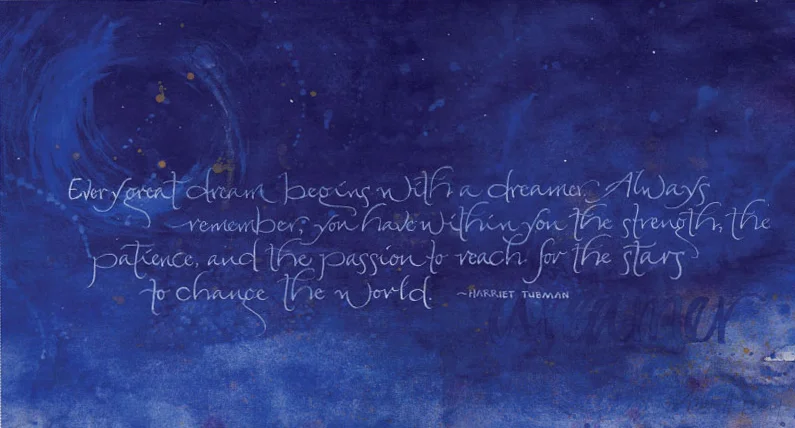 Every great dream begins with a dreamer. Always
remember, you have within you the strength, the
patience, and the passion to reach for the stars
to change the world. ~HARRIET TUBMAN
dreamer